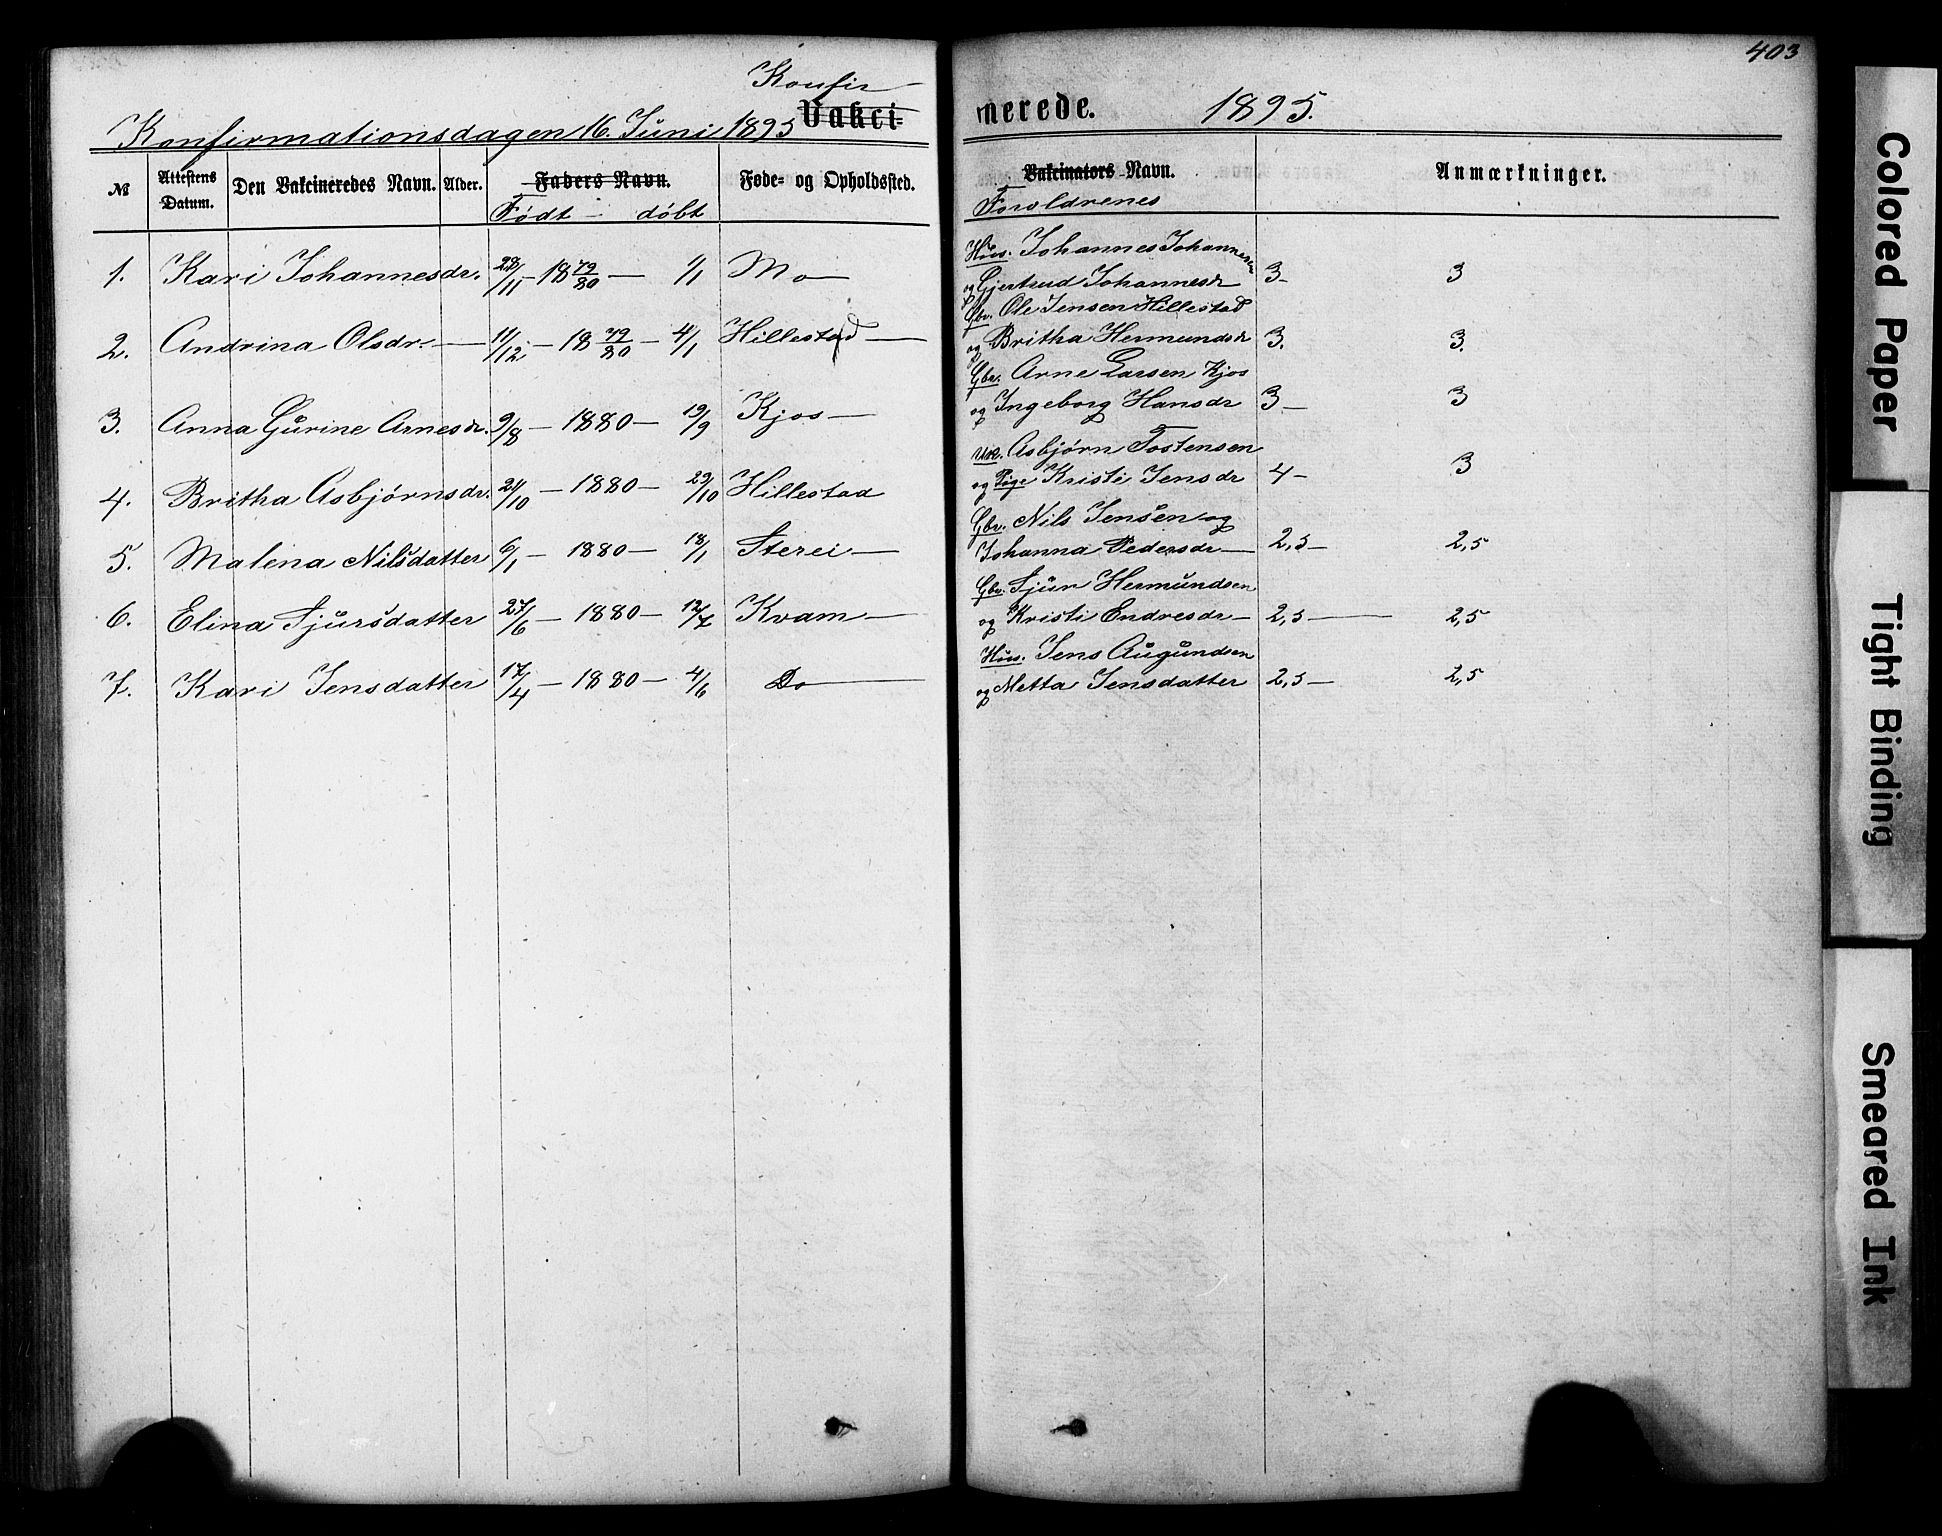 403
Konfir
Konfirmationsdagen 16. Juni 1895 Vakci= nerede. 1895.
№ Attestens Datum. Den Vakcineredes Navn. Alder. Faders Navn. Føde= og Opholdssted. Vakcinators Navn. Anmærkninger.
Født - döbt Foroldrenes
1. Kari Johannesdr. 28/11 - 18 79/80 - 1/1 Mo - Huus. Johannes Johannesen
og Gjertrud Johannesdr 3- 3
2. Andrina Olsdr. - 11/12 - 18 79/80 - 4/1 Hillestad - Gbr. Ole Jensen Hillestad
og Britha Hermundsdr 3. 3.
3. Anna Gurine Arnesdr. 9/8 - 1880 - 19/9 Kjos - Gbr. Arne Larsen Kjos
og Ingeborg Hansdr 3- 3
4. Britha Asbjørnsdr. 21/10 - 1880 - 29/10 Hillestad Asbjørn Tostensen
og Pige Kristi Jensdr 4- 3
5. Malena Nilsdatter 6/1 - 1880 - 18/1 Sterei - Gbr. Nils Jensen og
Johanna Pedersdr - 2,5 - 2,5
6. Elina Sjursdatter 27/6 - 1880 - 12/7 Kvam - Gbr. Sjur Hermundsen
og Kristi Endresdr - 2,5 - 2,5
7. Kari Jensdatter 17/4 - 1880 - 4/6 Do - Huus. Jens Augundsen
og Metta Jensdatter 2,5 - 2,5
Colored Paper
Tight Binding
Smeared Ink